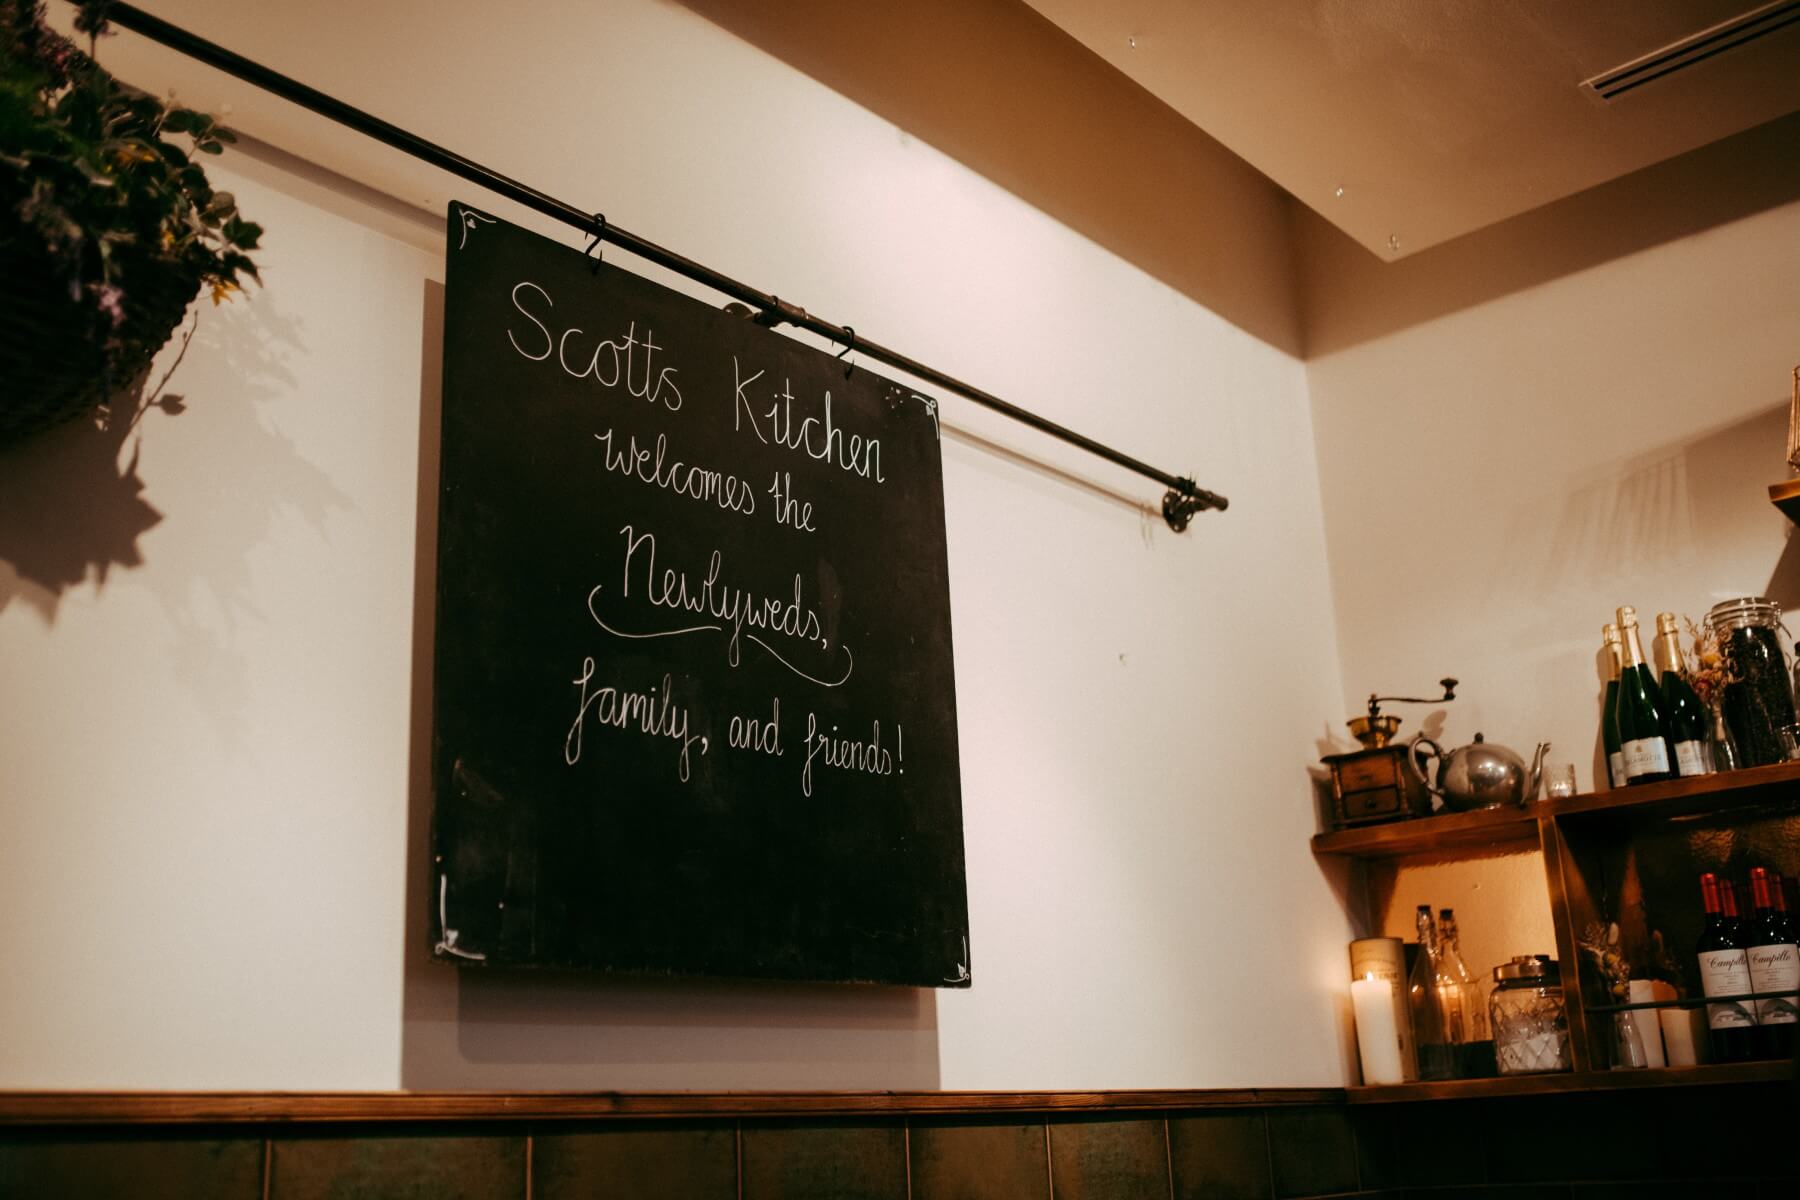 Scotts Kitchen
welcomes the
Newlyweds,
family, and friends!
Campillo
Campillo